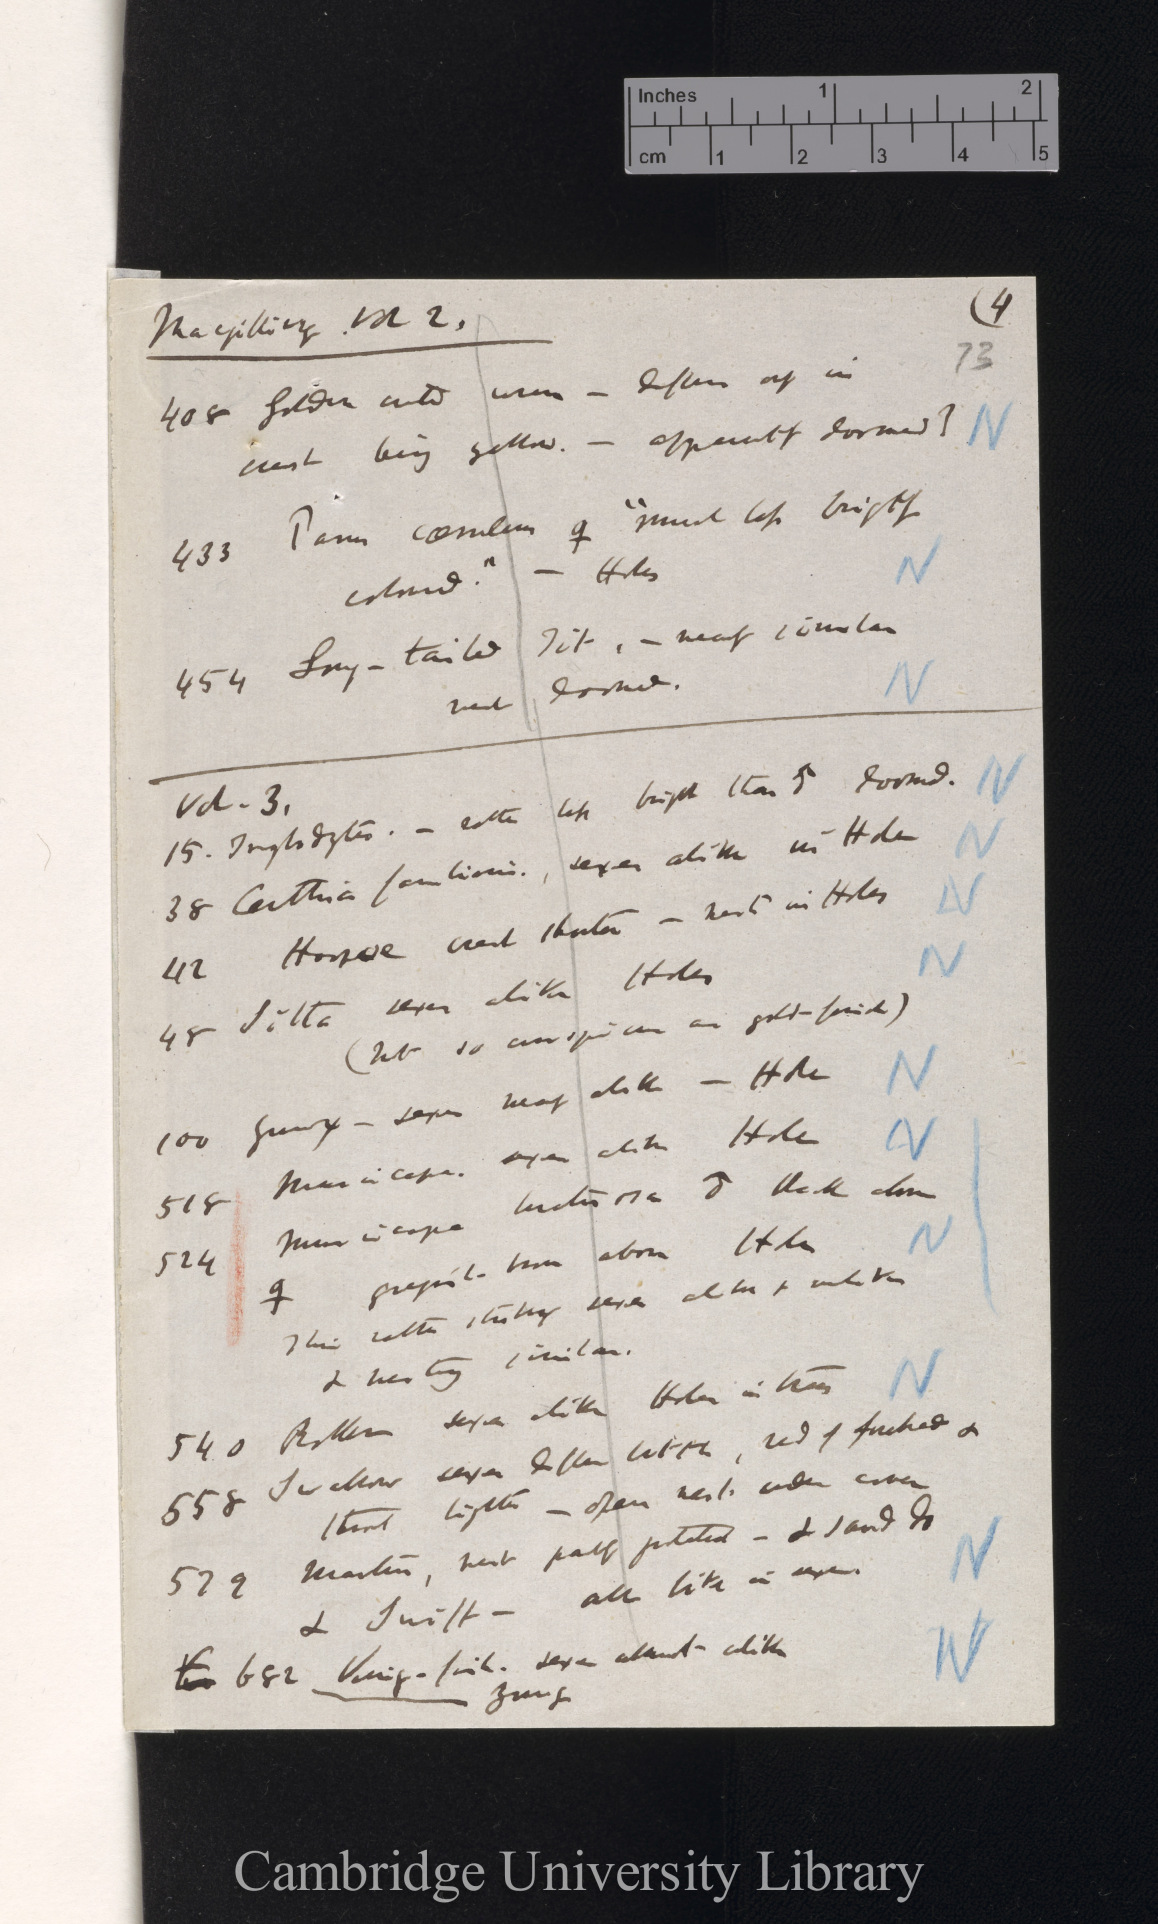 Inches 1 2
cm 1 2 3 4 5
(4
Macgillivray Vol 2.
73
408 Golden crested wren — differs only in
crest being yellow. — apparently domed? N
433 Parus cæruleus ♀ "much less brightly
coloured." — Holes N
454 Long-tailed Tit, — nearly similar
nest domed. N
Vol. 3.
15. Troglodytes. — rather less bright than ♂ domed. N
38 Certhia familiaris, sexes alike in Hole N
42 Hoopoe crest shorter — nest in Holes N
48 Sitta sexes alike Holes N
(Not so conspicuous as gold-finch)
100 — sexes nearly alike — Hole N
518 Muscicapa. sexes alike Hole N
524 Muscicapa luctuosa ♂ black above
♀ greyish brown above Holes N
This rather striking sexes alike & unlike
& nesting similar.
540 Roller sexes alike Holes in trees N
558 Swallow sexes differ little, red of forehead &
throat lighter — open nest. under cover
579 Martin, nest partly protected — & sand do
& Swift — all like in sexes. N
682 King-fish. sexes almost alike N
young
Cambridge University Library